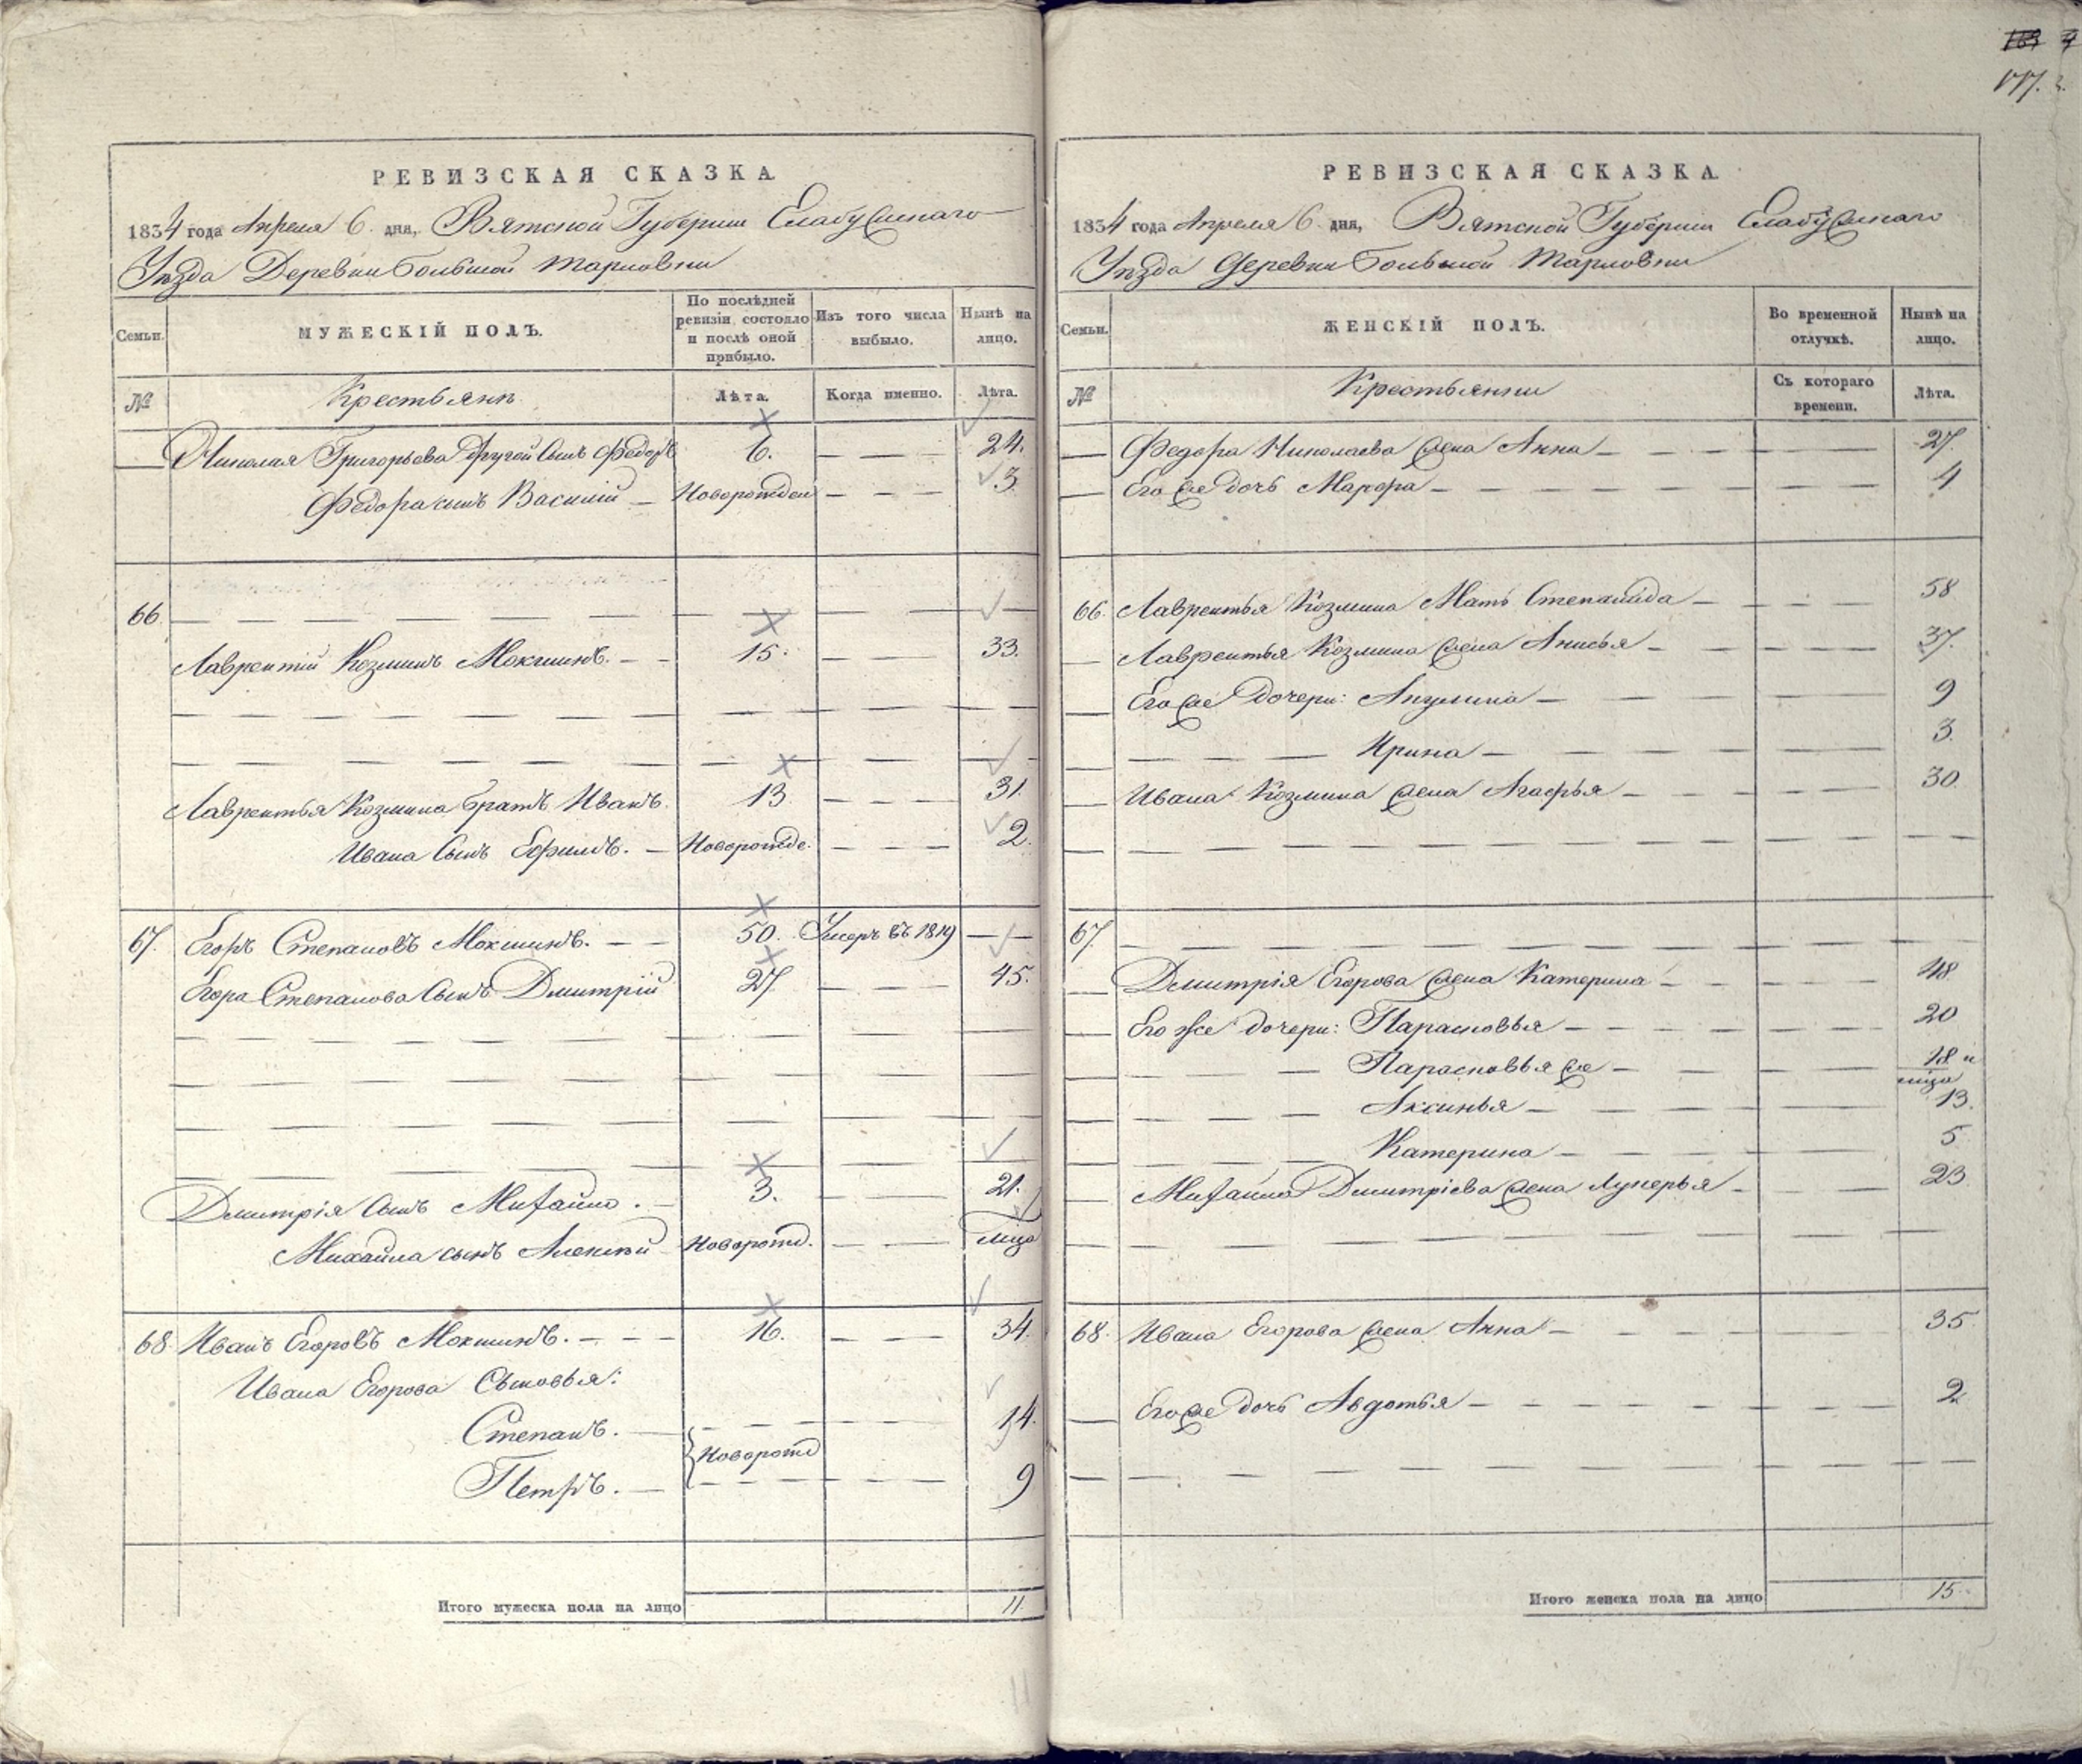 117.
РЕВИЗСКАЯ СКАЗКА
1834 года Апреля 6 дня, Вятской Губернии Елабужскаго
Уѣзда Деревни Большой Тарловки
Семьи.
МУЖЕСКІЙ ПОЛЪ.
По послѣдней ревизіи состояло и послѣ оной прибыло.
Изъ того числа выбыло.
Нынѣ на лицо.
№
Крестьянъ
Лѣта.
Когда именно.
Лѣта.
Николая Григорьева другой сынъ Федоръ 6. — — — 24.
Федора сынъ Василій — Новорожден — — — 3
66 — — — — — —
Лаврентій Козминъ Мокшинъ. — — 15. — — — 33.
Лаврентья Козмина братъ Иванъ. 13 — — — 31.
Ивана сынъ Ефимъ. — Новорожде. — — — 2.
67. Егоръ Степановъ Мокшинъ. — — 50. Умеръ въ 1819 — —
Егора Степанова сынъ Дмитрій 27 — — — 45.
Дмитрія сынъ Михайло. — 3. — — 21.
Михайла сынъ Алексѣй Новорожд. — — мѣца
68 Иванъ Егоровъ Мокшинъ. — — — 16. — — — 34.
Ивана Егорова Сыновья:
Степанъ. — — — — 14.
Новорожд
Петръ. — — — — 9
Итого мужеска пола на лицо 11
РЕВИЗСКАЯ СКАЗКА.
1834 года Апреля 6 дня, Вятской Губерніи Елабужскаго
Уѣзда деревни Большой Тарловки
Семьи.
ЖЕНСКІЙ ПОЛЪ.
Во временной отлучкѣ.
Нынѣ на лицо.
№
Крестьянки
Съ котораго времени.
Лѣта.
— Федора Николаева жена Анна — — — — 27.
— Его же дочь Марфа — — — — 4
66. Лаврентья Козмина Мать Степанида — — — — 58
— Лаврентья Козмина жена Анисья — — — — 37.
— Его же дочери: Акулина — — — — 9
— — — Ирина — — — — 3.
— Ивана Козмина жена Агафья — — — — 30.
67. — — — — — —
— Дмитрія Егорова жена Катерина — — — — 48
— Его же дочери: Парасковья — — — — 20
— — — Парасковья же — — — — 18 и
мѣца
— — — Аксинья — — — — 13.
— — — Катерина — — — — 5
— Михайла Дмитріева жена Лукерья — — — 23.
68. Ивана Егорова жена Анна — — — — 35
— Его же дочь Авдотья — — — — 2
Итого женска пола на лицо 15.